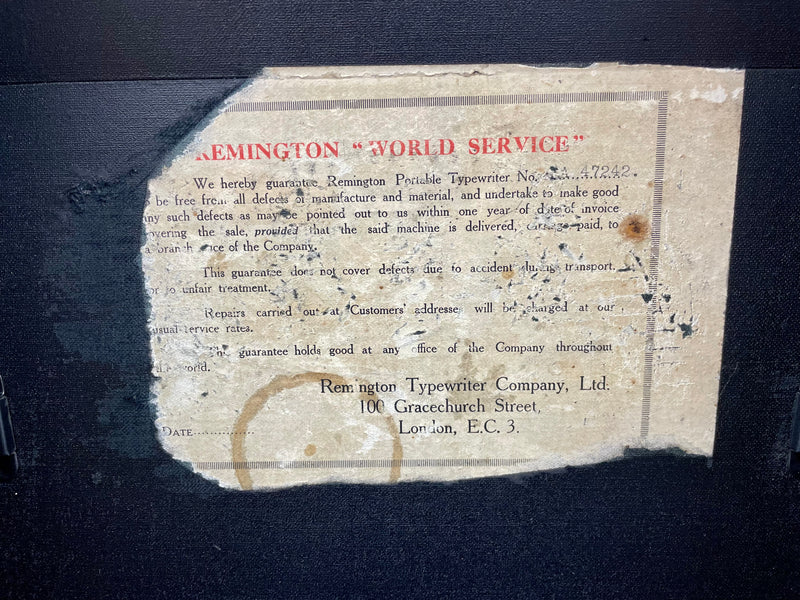 REMINGTON “WORLD SERVICE”
We hereby guarantee Remington Portable Typewriter No. 47242.
be free from all defects of manufacture and material, and undertake to make good
any such defects as may be pointed out to us within one year of date of invoice
overing the sale, provided that the said machine is delivered, carriage paid, to
a branch office of the Company.
This guarantee does not cover defects due to accident during transport,
or to unfair treatment.
Repairs carried out at Customers’ addresses will be charged at our
usual service rates.
This guarantee holds good at any office of the Company throughout
the world.
Remington Typewriter Company, Ltd.
100 Gracechurch Street,
London, E.C. 3.
DATE